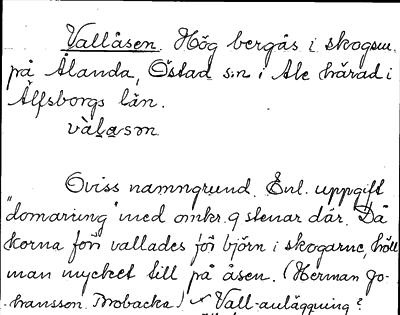 Vallåsen. Hög bergås i skogsm.
på Ålanda, Östad s:n i Ale härad i
Älfsborgs län.
vàlasɔn
Oviss namngrund. Enl. uppgift
"domarring" med omkr. 9 stenar där. Då
korna förr vallades för björn i skogarne, höll
man mycket till på åsen. (Herman Jo-
hansson. Brobacka) Vall-anläggning?